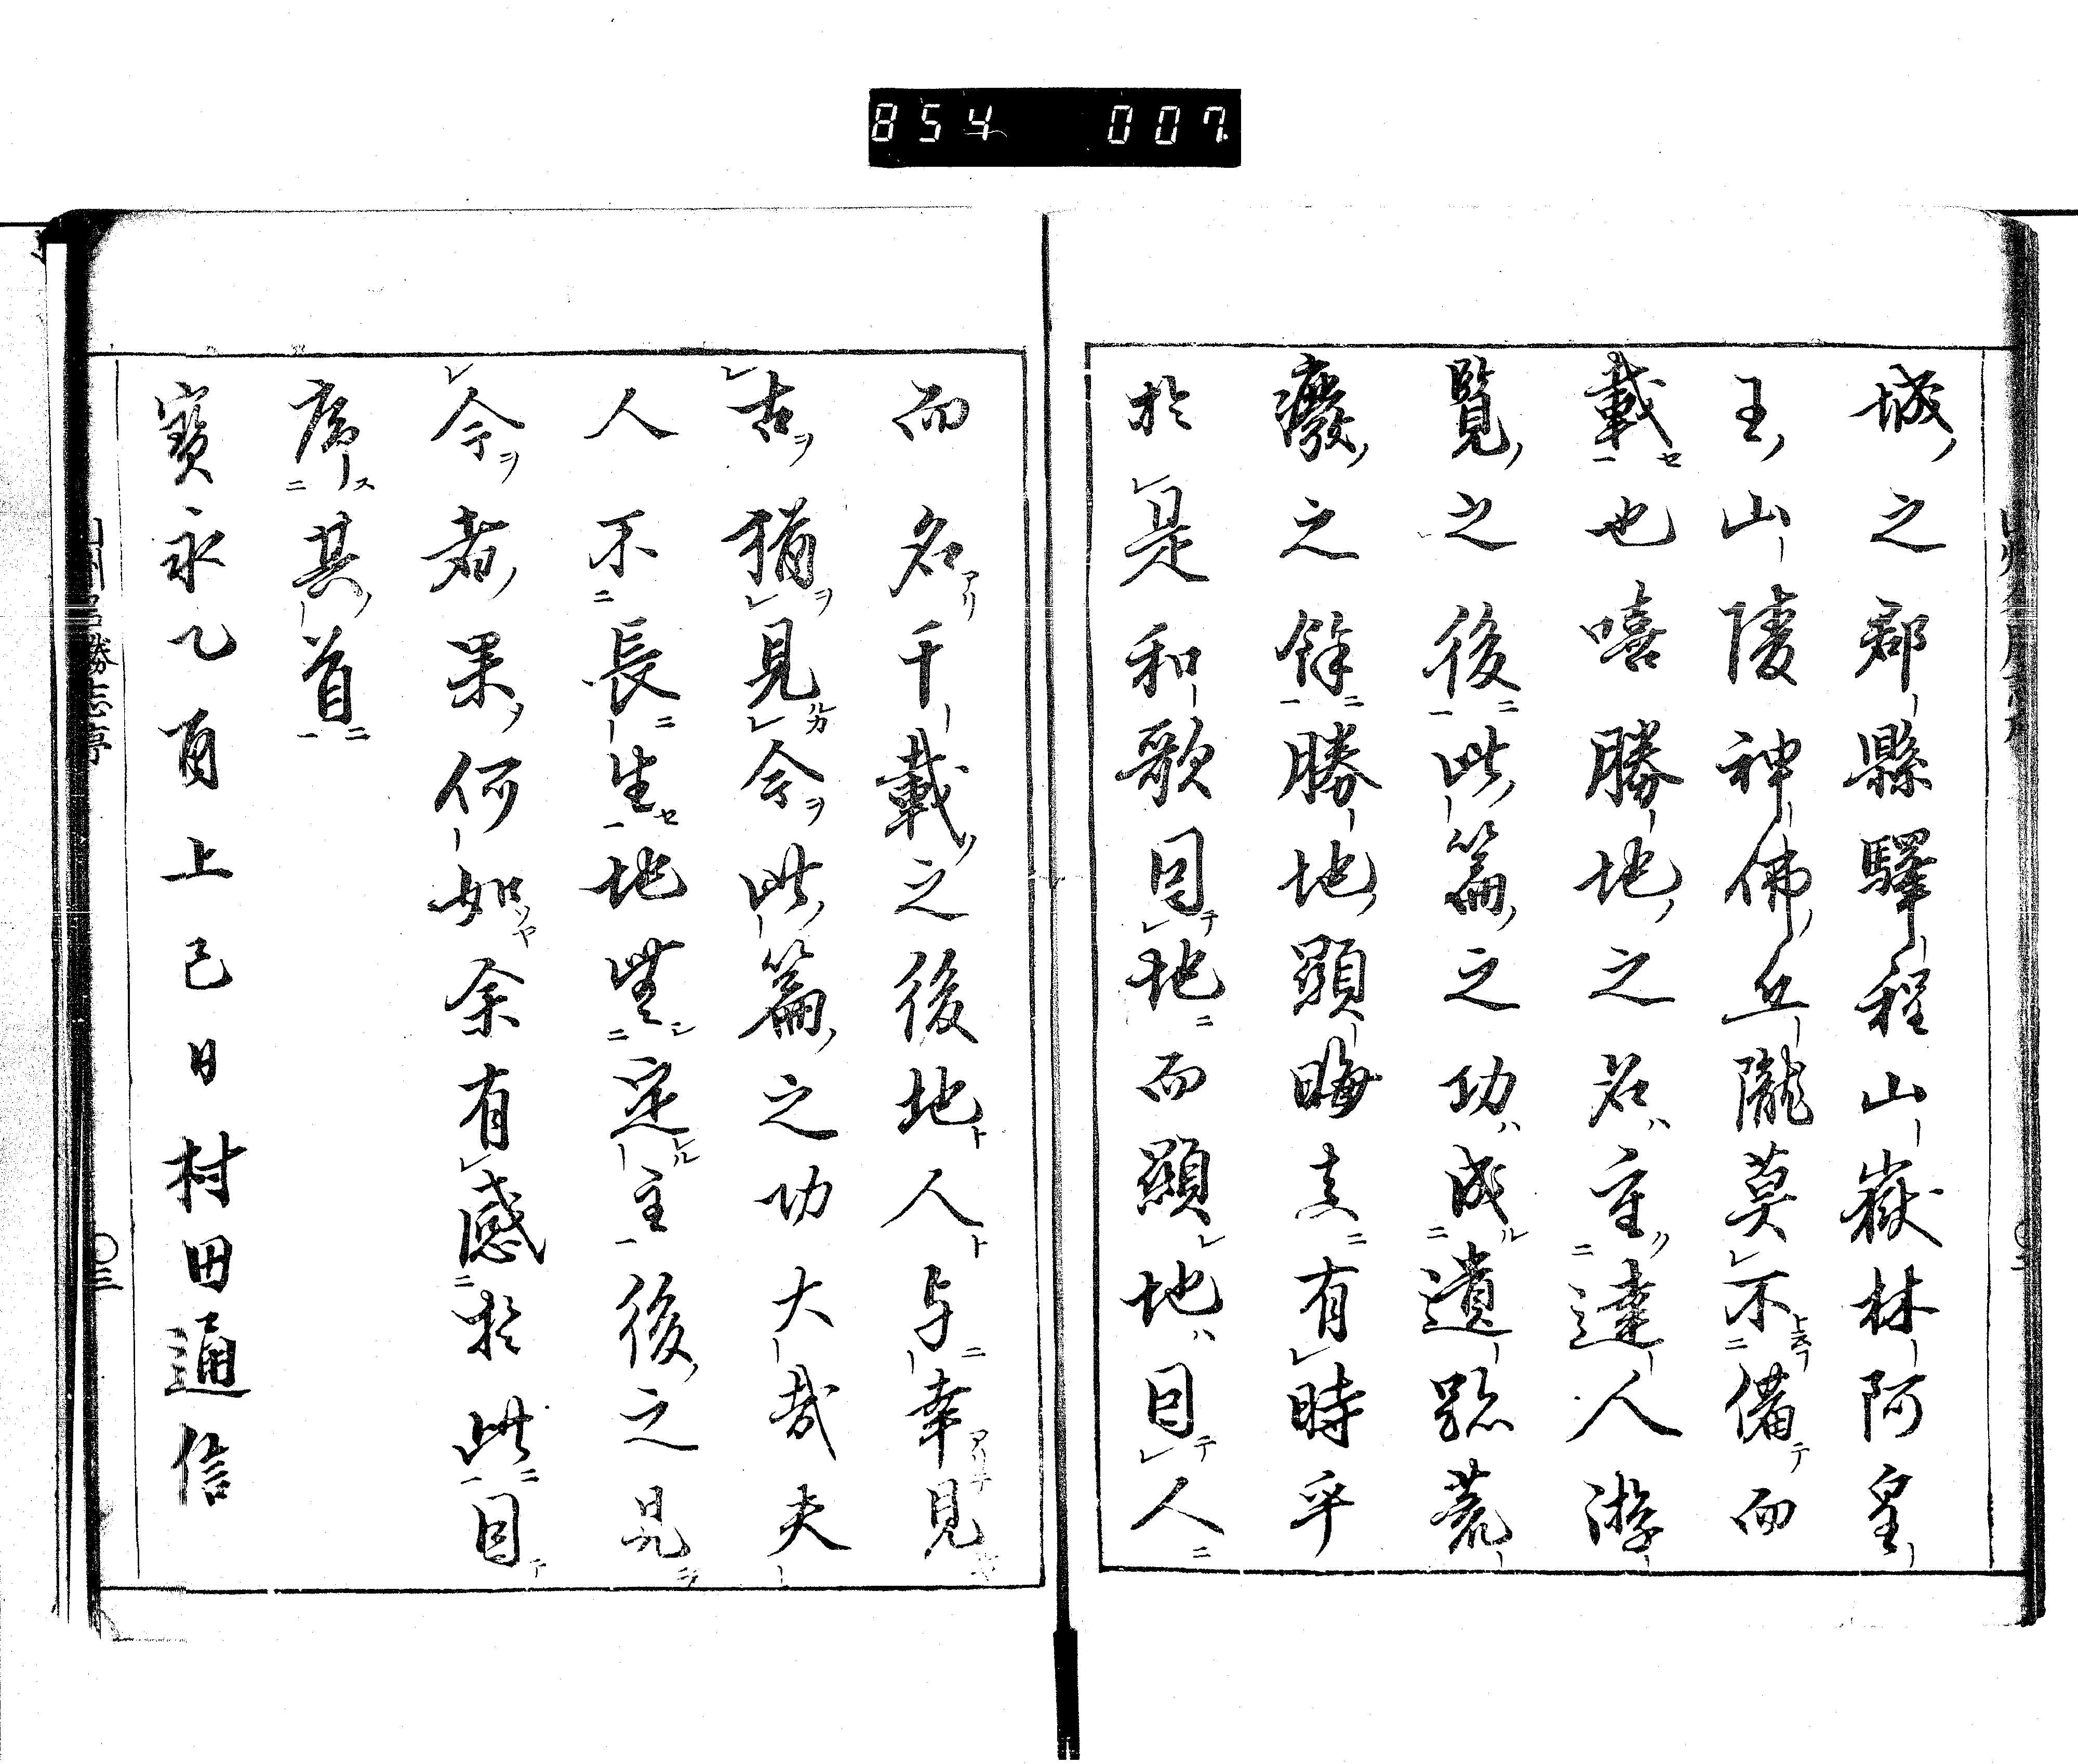 854 007
城之郡縣驛程山嶽林阿皇
王山陵神佛丘隴莫不備而
載也嘻勝地之名重達人游
覽之後此篇之功成遺跡荒
癈之餘勝地顯晦支有時乎
於是和歌因地而顯地因人
而名千載之後地人与幸見
古猶見今此篇之功大哉夫
人不長生地無定主後之見
今者果何如余有感於此因
序其首
寶永乙酉上巳日村田通信
三